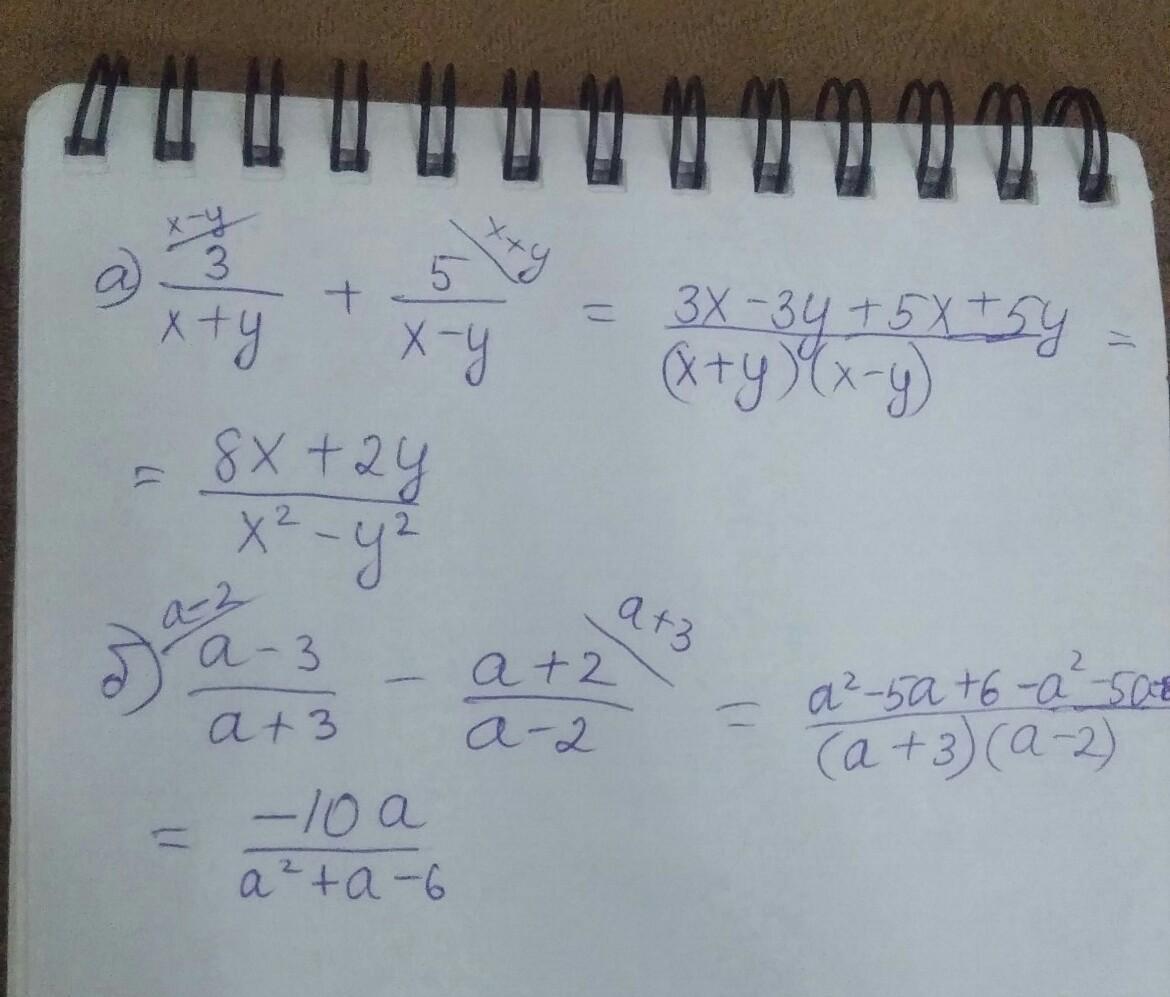 а) x-y 3/(x+y) + 5/(x-y) x+y = (3x-3y+5x+5y)/((x+y)(x-y)) =
= (8x+2y)/(x²-y²)
б) a-2 (a-3)/(a+3) - (a+2)/(a-2) a+3 = (a²-5a+6-a²-5a-6)/((a+3)(a-2))
= (-10a)/(a²+a-6)